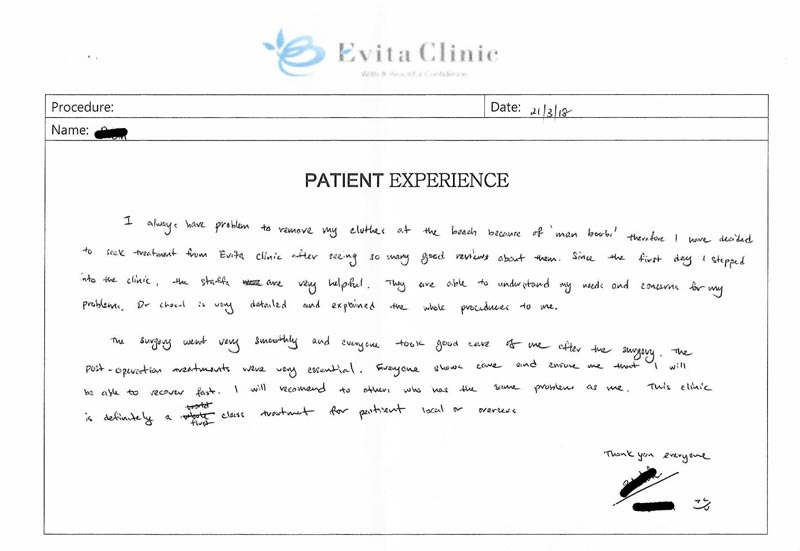 Evita Clinic
With A Beautiful Confidence
Procedure:
Date: 21/3/18
Name:
PATIENT EXPERIENCE
I always have problem to remove my clothes at the beach because of 'man boobs' therefore I have decided
to seek treatment from Evita clinic after seeing so many good reviews about them. Since the first day I stepped
into the clinic, the staffs are very helpful. They are able to understand my needs and concerns for my
problems. Dr is very detailed and explained the whole procedures to me.
The surgery went very smoothly and everyone took good care of me after the surgery. The
post-operation treatments were very essential. Everyone shows care and ensure me that I will
be able to recover fast. I will recomend to others who has the same problem as me. This clinic
is definitely a class treatment for patient local or overseas
Thank you everyone